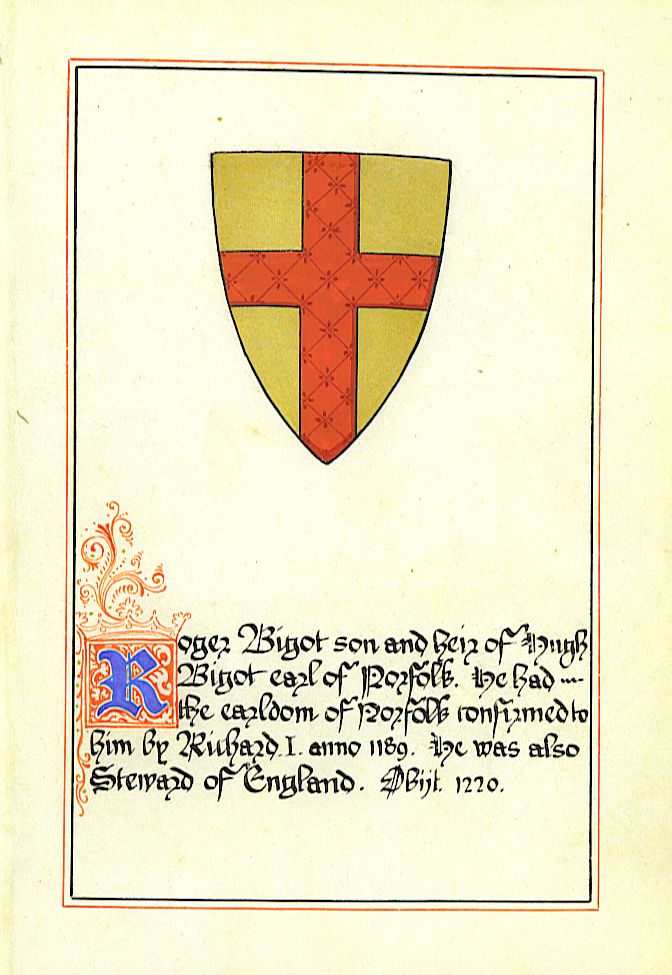 Roger Bigot son and heir of Hugh
Bigot earl of Norfolk. He had
the earldom of Norfolk confirmed to
him by Richard. I. anno 1189. He was also
Steward of England. Obijt. 1220.